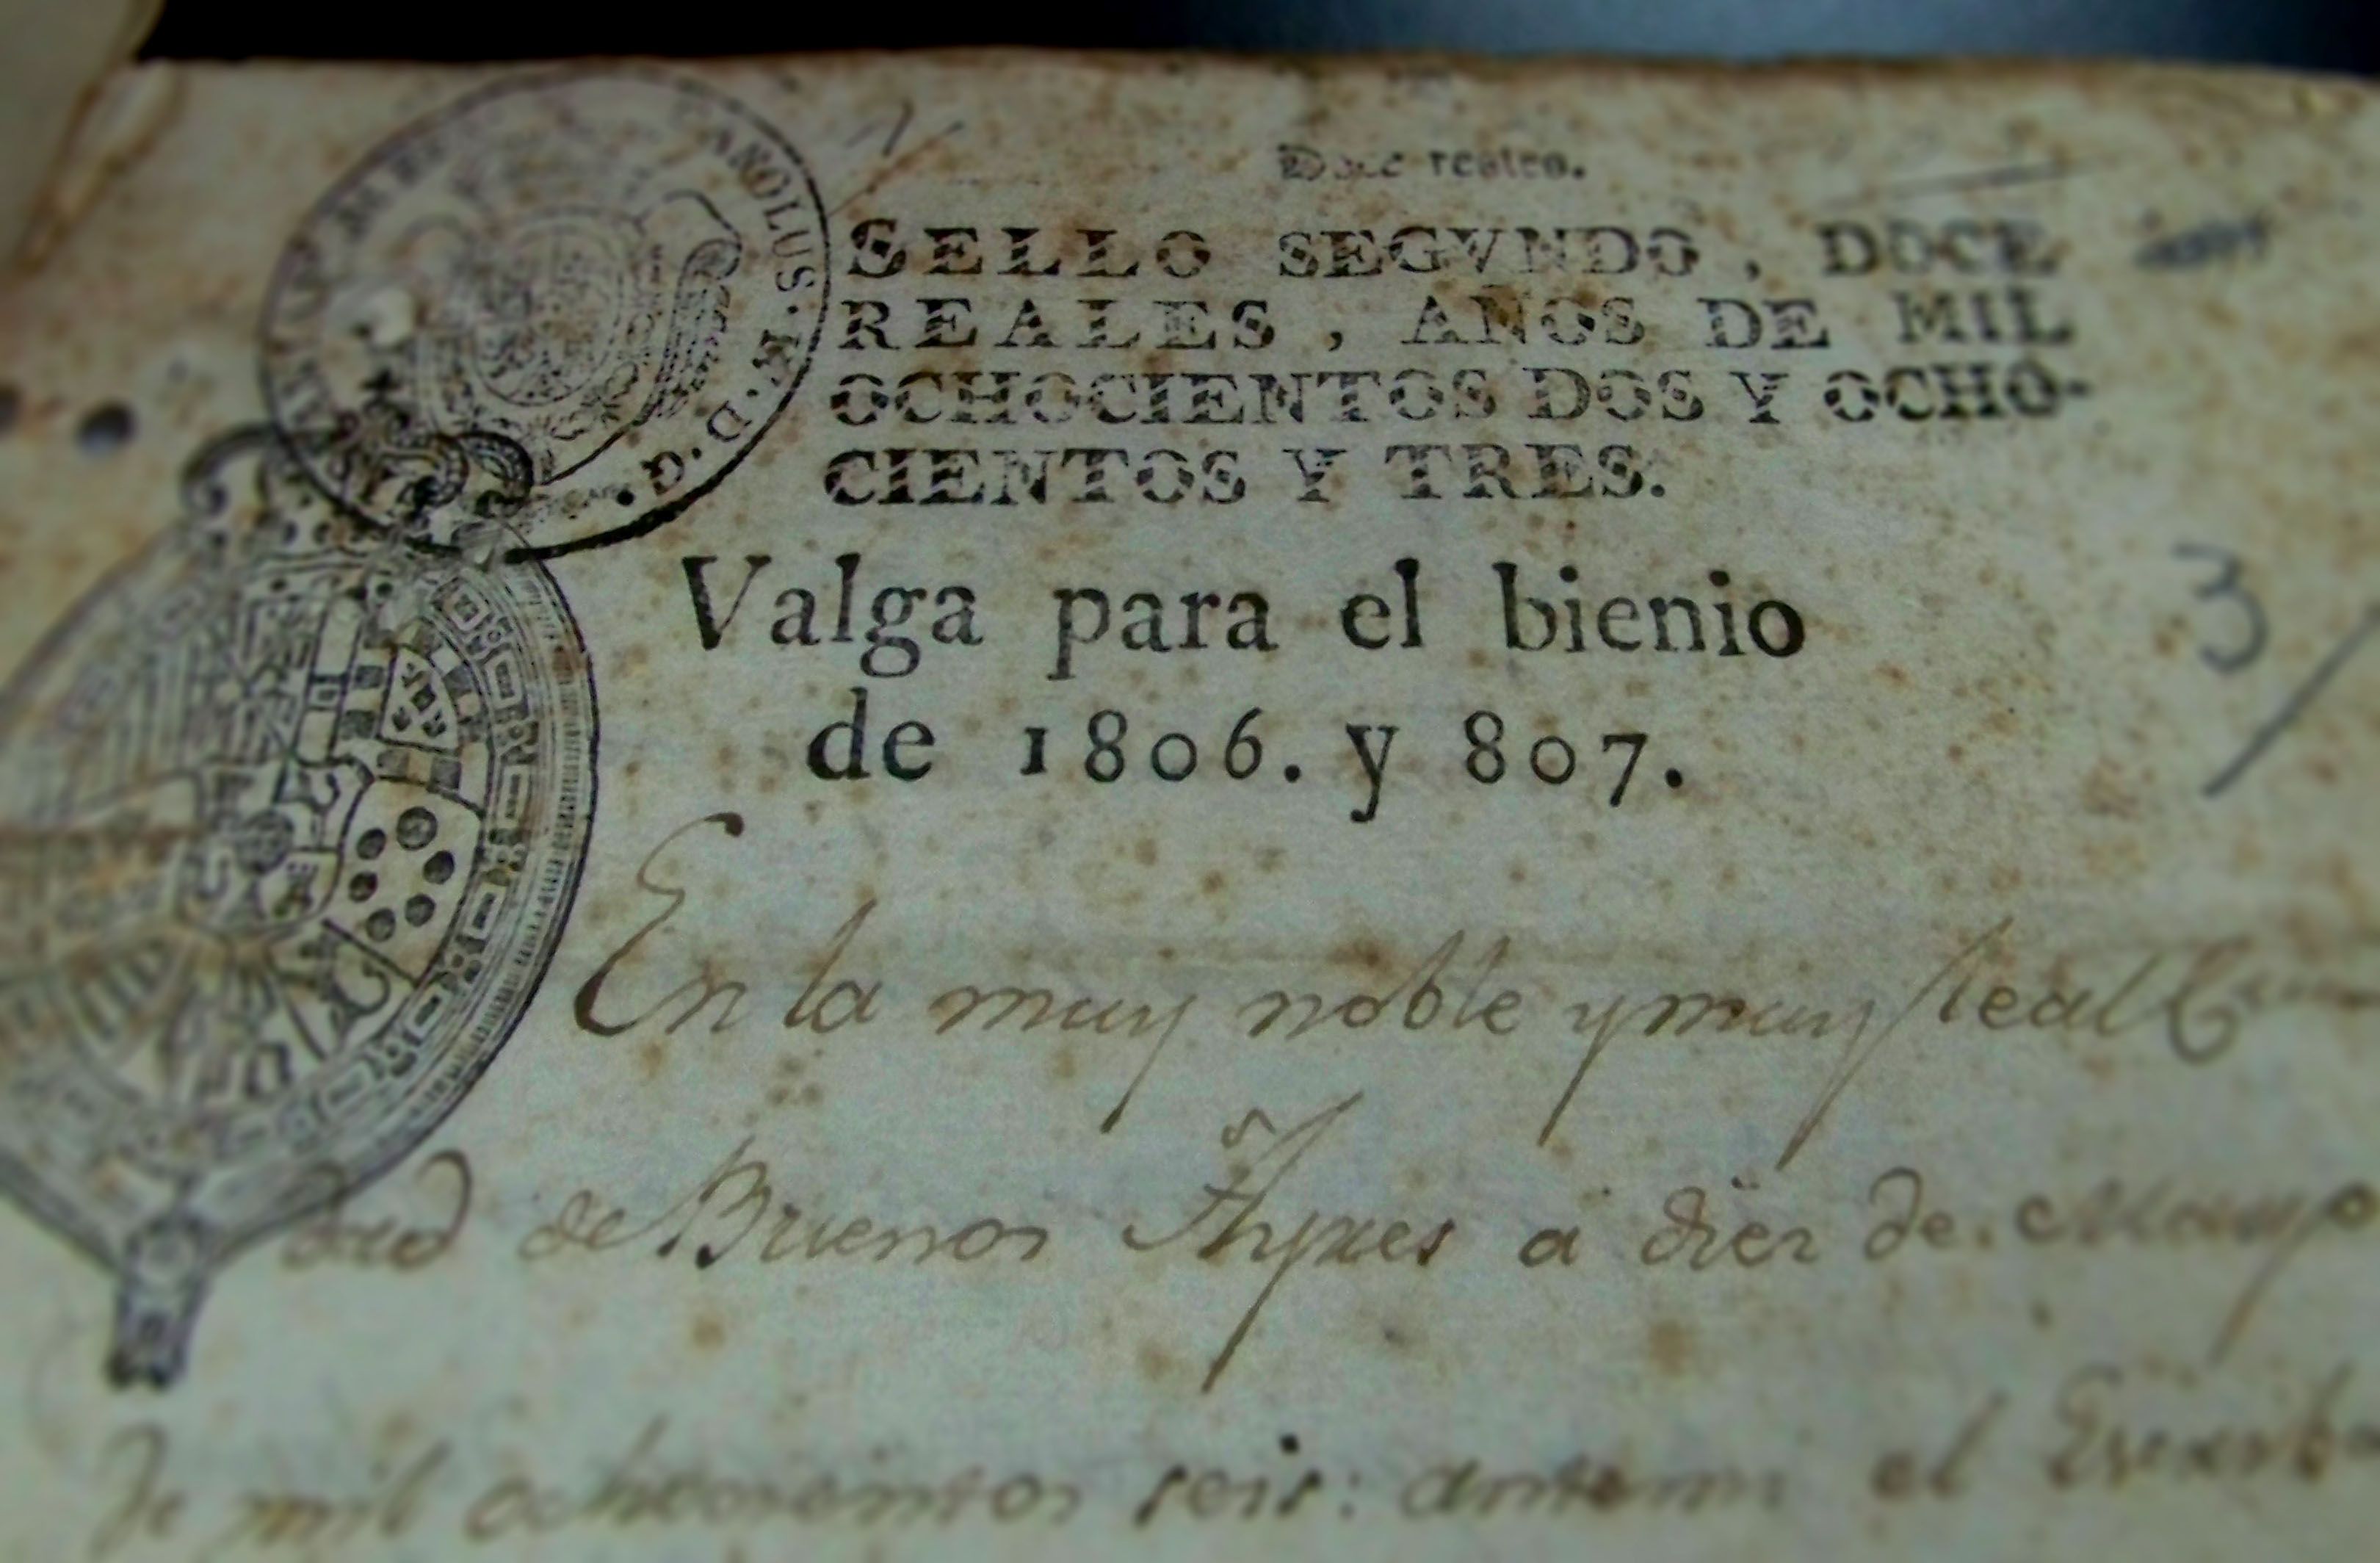 Doce reales.
SELLO SEGVNDO, DOCE
REALES, AÑOS DE MIL
OCHOCIENTOS DOS Y OCHO-
CIENTOS Y TRES.
CAROLUS·IV·D·G·
Valga para el bienio
de 1806. y 807.
3/
En la muy noble y muy leal Ciu
dad de Buenos Ayres a diez de Mayo
de mil ochocientos seis: antemi el Escrib